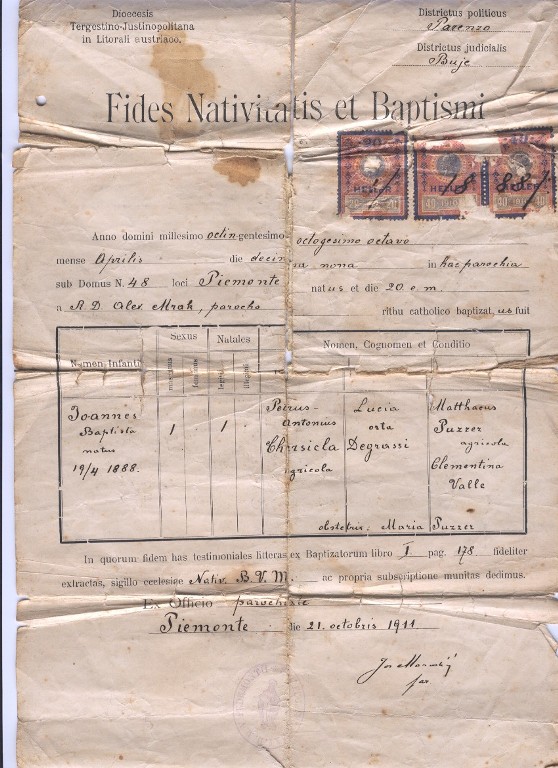 Dioecesis
Tergestino-Justinopolitana
in Litorali austriaco.
Districtus politicus
Parenzo
Districtus judicialis
Buje
Fides Nativitatis et Baptismi
20
HELLER
HELLER
Anno domini millesimo octingentesimo octogesimo octavo
mense Aprilis die decima nona in hac parochia
sub Domus N. 48 loci Piemonte natus et die 20 e. m.
a A. D. Alex. Mrak, parocho ritbu catholico baptizatus fuit
Nomen Infantis
Sexus
Natales
Nomen, Cognomen et Conditio
masculinus
legit.
illegit.
Joannes
Baptista
natus
19/4 1888.
1
1
Petrus-
Antonius
agricola
Lucia
orta
Degrassi
Matthaeus
Puzzer
agricola
Clementina
Valle
obstetrix: Maria Puzzer
In quorum fidem has testimoniales litteras ex Baptizatorum libro I pag. 178 fideliter
extractas, sigillo ecclesiae Nativ. B. V. M. ac propria subscriptione munitas dedimus.
Ex Officio parochiae
Piemonte die 21. octobris 1911
par.